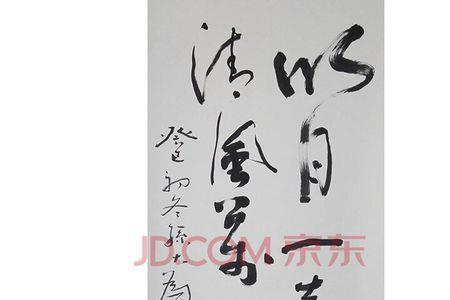 明月一
清風萬
癸巳初冬孫大為
JD.COM 京东